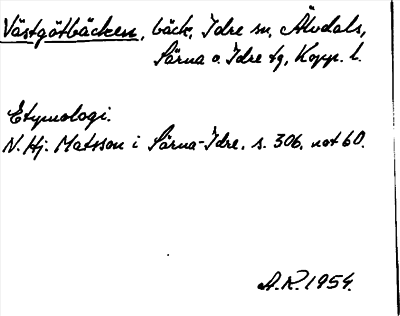 Västgötbäcken, bäck, Idre sn, Älvdals,
Särna o. Idre tg, Kopp. l.
Etymologi.
N. Hj. Matsson i Särna-Idre, s. 306, not 60.
A.R. 1954.